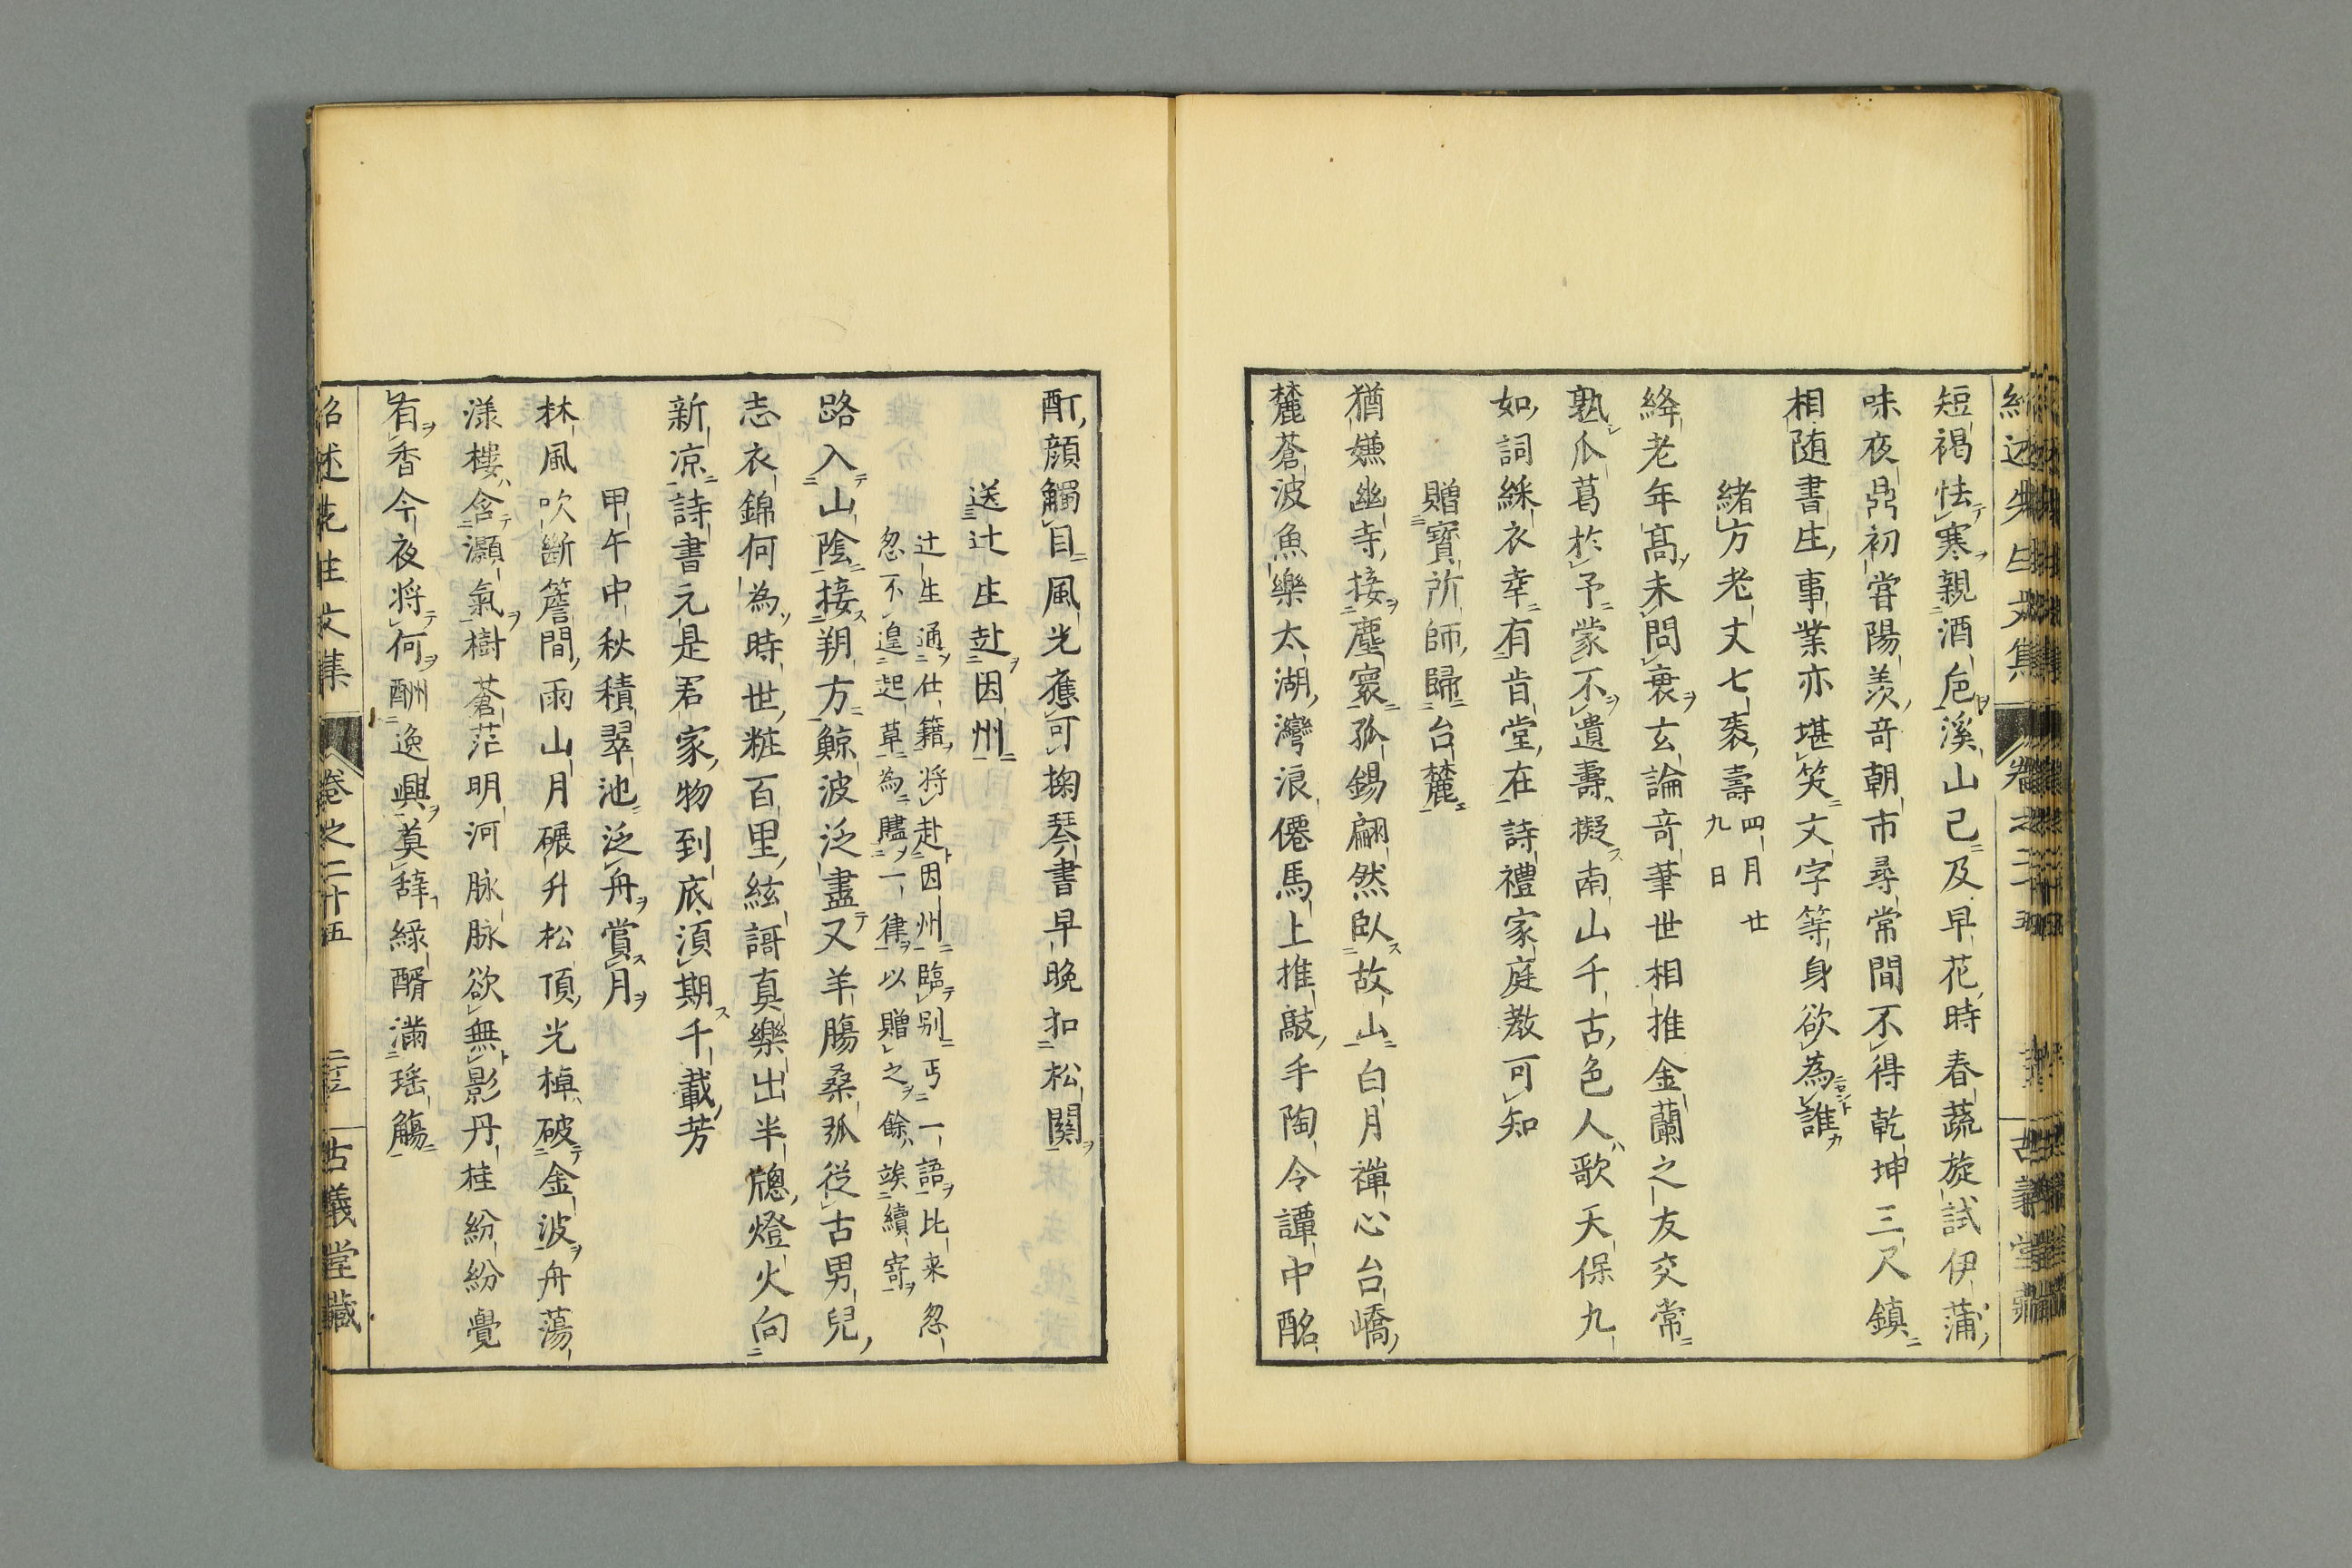 短褐怯寒親酒卮溪山已及早花時春蔬旋試伊蒲
味夜鼎初嘗陽羨奇朝市尋常間不得乾坤三尺鎮
相随書生事業亦堪笑文字等身欲為誰
緒方老丈七袠壽四月廿九日
絳老年髙未問衰玄論奇筆世相推金蘭之友交常
熟瓜葛於予蒙不遺壽擬南山千古色人歌天保九
如詞綵衣幸有肯堂在詩禮家庭教可知
贈寳所師歸台麓
猶嫌幽寺接塵寰孤錫翩然臥故山白月禪心台嶠
麓蒼波魚樂太湖灣浪僊馬上推敲手陶令譚中酩
酊顔觸目風光應可掬琴書早晩扣松關
送辻生赴因州
辻生通仕籍将赴因州臨别丐一語比来怱
怱不遑起草為贐一律以贈之餘竢續寄
路入山陰接朔方鯨波泛盡又羊腸桑弧從古男兒
志衣錦何為時世粧百里絃謌真樂出半牕燈火向
新凉詩書元是君家物到底湏期千載芳
甲午中秋積翠池泛舟賞月
林風吹斷簷間雨山月碾升松頂光棹破金波舟蕩
漾樓含灝氣樹蒼茫明河脉脉欲無影丹桂紛紛覺
有香今夜将何酬逸興莫辞緑醑滿瑶觴
紹述先生文集 卷之二十五 古義堂藏